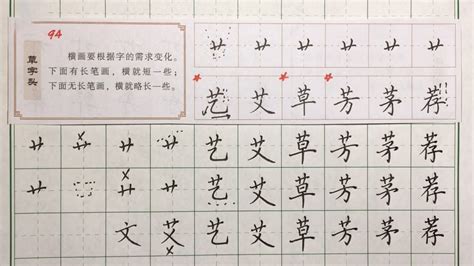 94
草字头
横画要根据字的需求变化。
下面有长笔画，横就短一些；
下面无长笔画，横就略长一些。
艹 艹 艹 艹 艹 艹
艺 艾 草 芳 茅 荐
艹 艹 艹 艹 艺 艾 草 芳 茅 荐
艹 艹 艹 艺 艾 草 芳 茅 荐
文 艾 艺 艾 草 芳 茅 荐